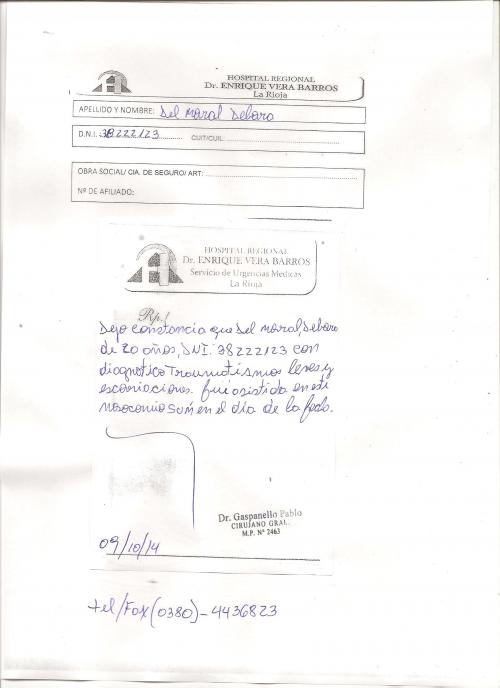 HOSPITAL REGIONAL
Dr. ENRIQUE VERA BARROS
La Rioja
APELLIDO Y NOMBRE: Del Moral Debora
D.N.I. 38222123 CUIT/CUIL:
OBRA SOCIAL/ CIA. DE SEGURO/ ART:
Nº DE AFILIADO:
HOSPITAL REGIONAL
Dr. ENRIQUE VERA BARROS
Servicio de Urgencias Medicas
La Rioja
Rp./
Dejo constancia que Del Moral, Debora
de 20 años, DNI: 38222123 con
diagnostico Traumatismos leves y
escoriaciones. fue asistida en este
nosocomio en el día de la fecha.
Dr. Gaspanello Pablo
CIRUJANO GRAL.
M.P. Nº 2463
09/10/14
tel/Fax (0380)-4436823